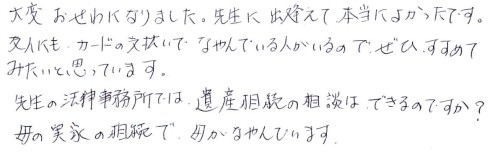 大変 おせわになりました。先生に 出逢えて 本当によかったです。
友人にも カードの支払いで なやんでいる人がいるので、ぜひ、すすめて
みたいと思っています。
先生の法律事務所では、遺産相続の相談は できるのですか?
母の実家の相続で、母がなやんでいます。